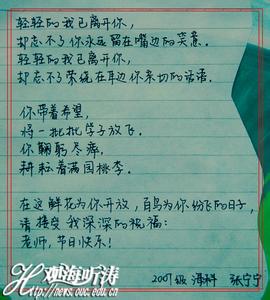 轻轻的我已离开你，
却忘不了你永远留在嘴边的笑意。
轻轻的我已离开你，
却忘不了萦绕在耳边你亲切的话语。
你带着希望，
将一批批学子放飞。
你鞠躬尽瘁，
耕耘着满园桃李。
在这鲜花为你开放，百鸟为你纷飞的日子，
请接受我深深的祝福：
老师，节日快乐！
2007级 海科 张宁宁
观海听涛
http://news.ouc.edu.cn